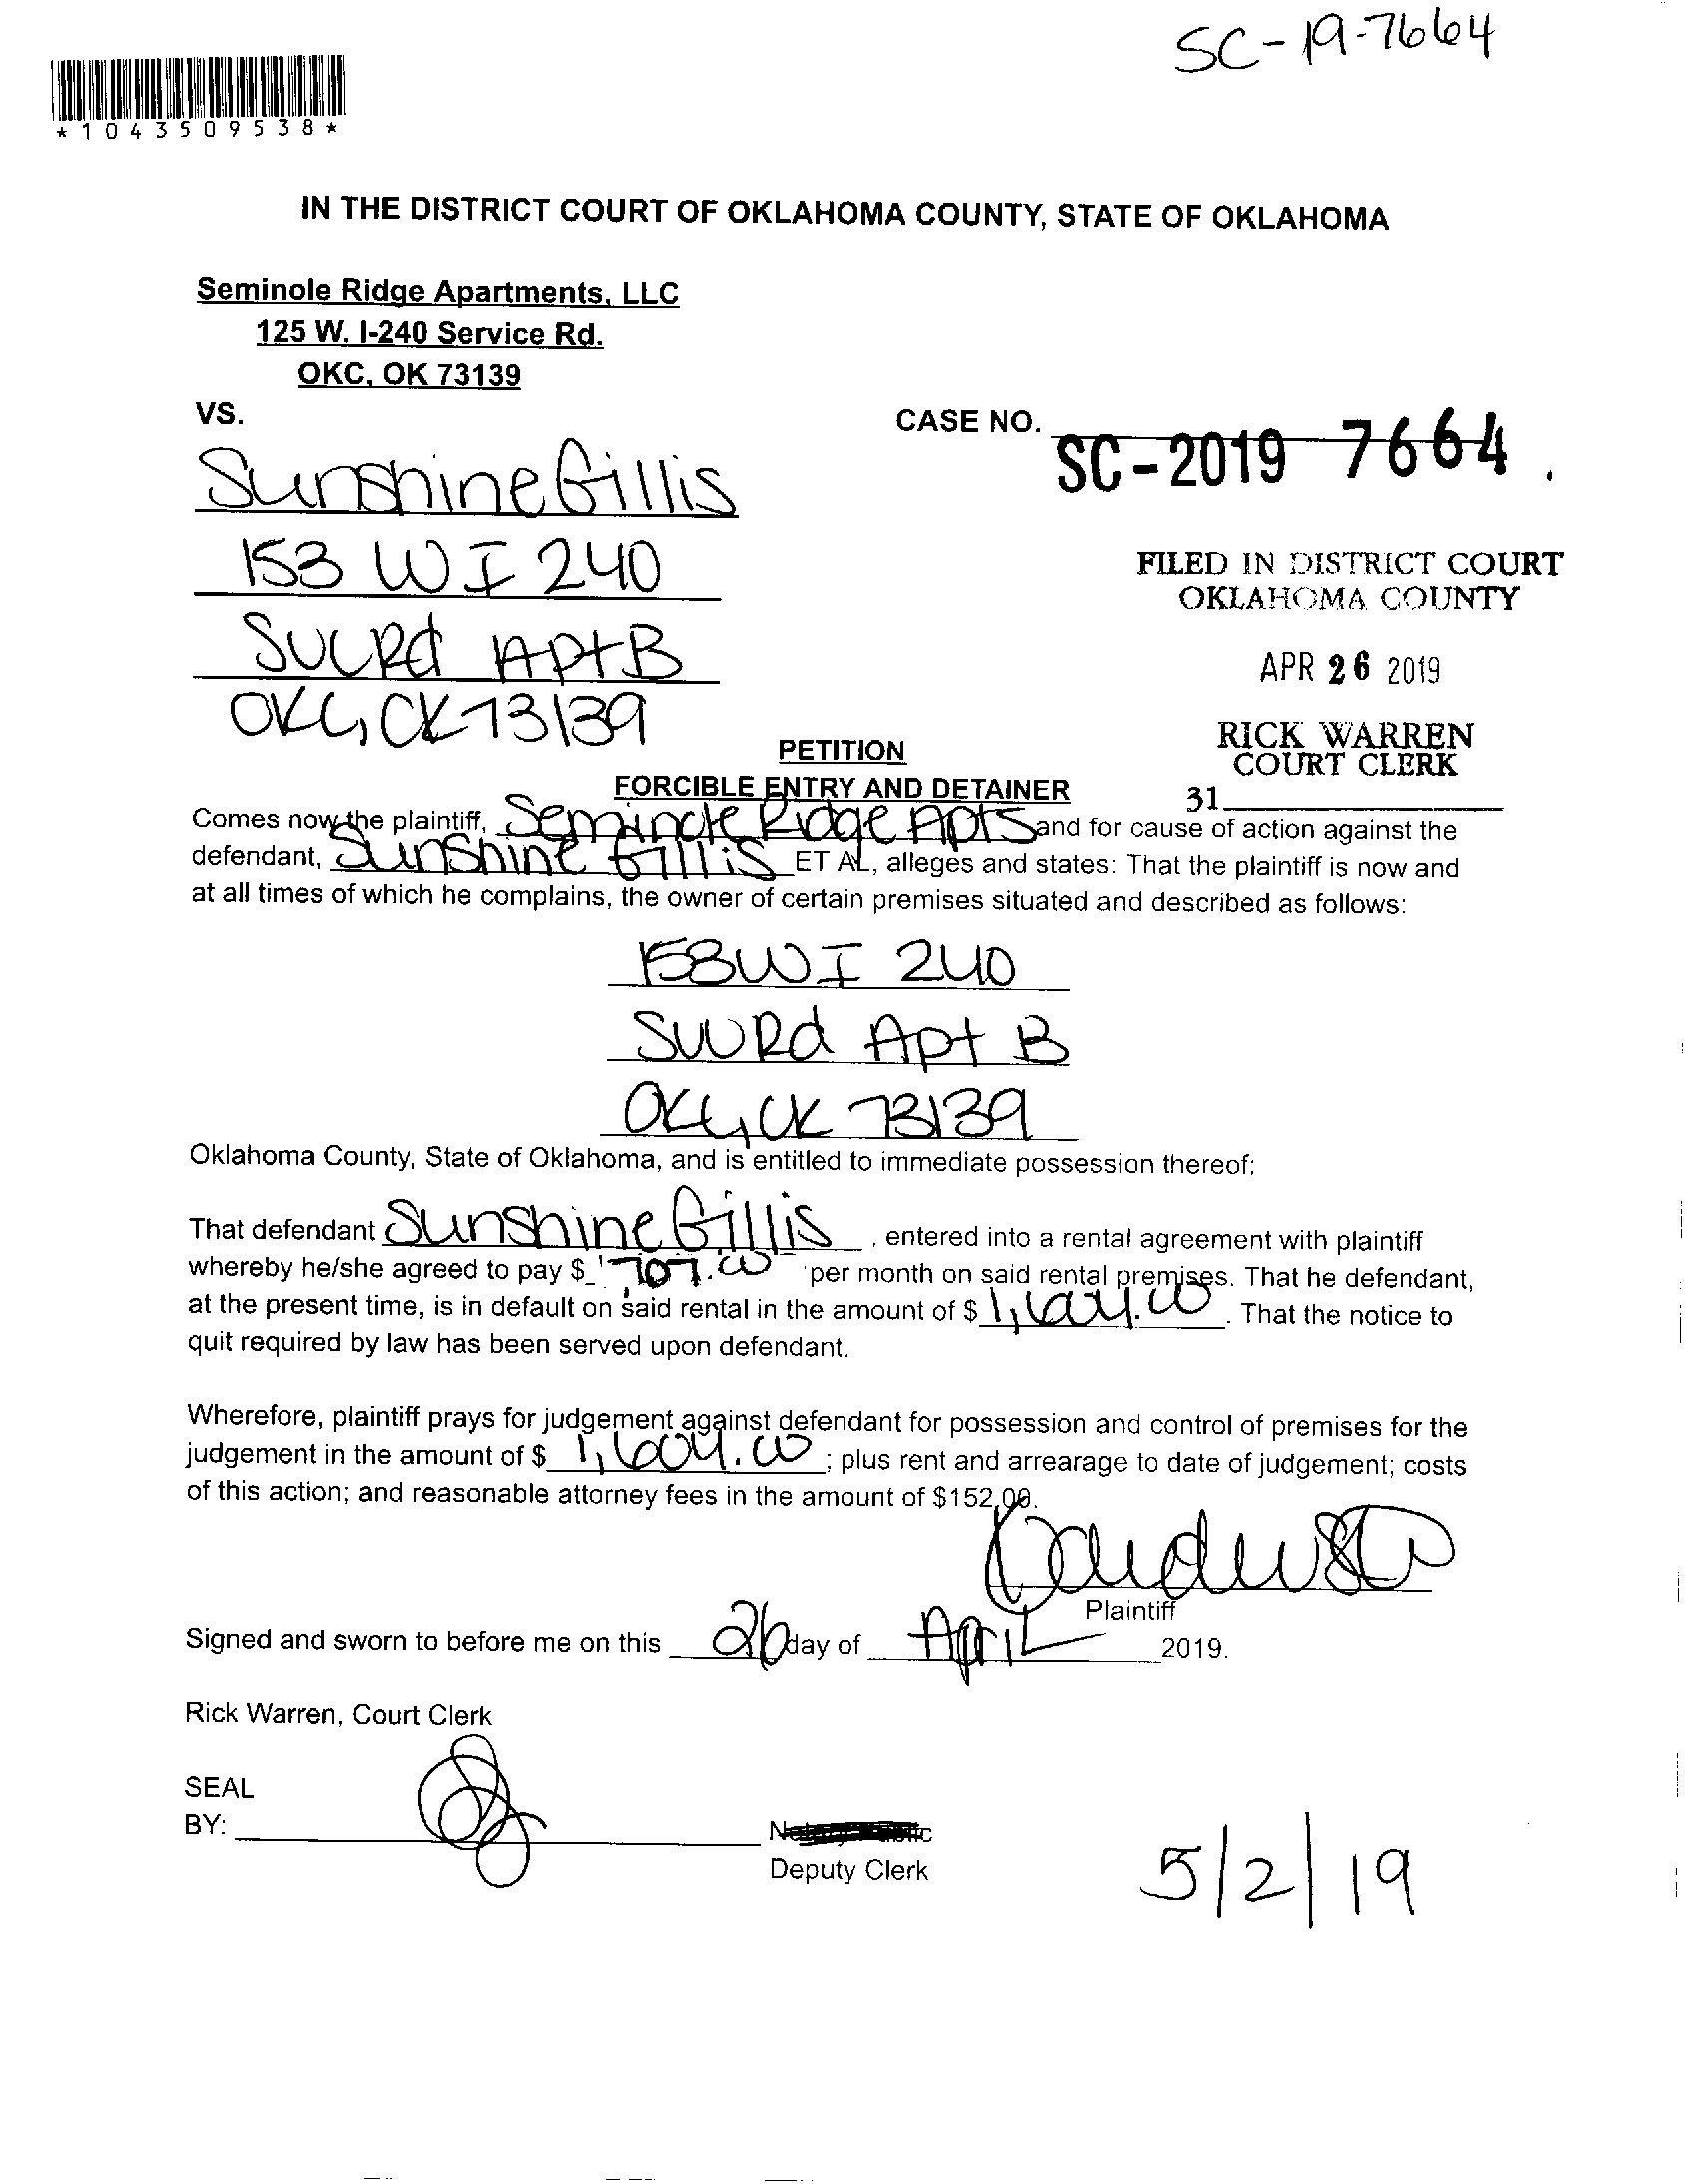 SC-19-7664
*1043509538*
IN THE DISTRICT COURT OF OKLAHOMA COUNTY, STATE OF OKLAHOMA
Seminole Ridge Apartments, LLC
125 W. I-240 Service Rd.
OKC, OK 73139
VS.
CASE NO. SC-2019 7664
Sunshine Gillis
153 W I 240
Apt B
OKC, OK 73139
FILED IN DISTRICT COURT
OKLAHOMA COUNTY
APR 26 2019
RICK WARREN
COURT CLERK
31
PETITION
FORCIBLE ENTRY AND DETAINER
Comes now the plaintiff, Seminole Ridge Apts and for cause of action against the
defendant, Sunshine Gillis ET AL, alleges and states: That the plaintiff is now and
at all times of which he complains, the owner of certain premises situated and described as follows:
153 W I 240
Apt B
OKC, OK 73139
Oklahoma County, State of Oklahoma, and is entitled to immediate possession thereof;
That defendant Sunshine Gillis, entered into a rental agreement with plaintiff
whereby he/she agreed to pay $ 707.00 per month on said rental premises. That he defendant,
at the present time, is in default on said rental in the amount of $ 1,604.00. That the notice to
quit required by law has been served upon defendant.
Wherefore, plaintiff prays for judgement against defendant for possession and control of premises for the
judgement in the amount of $ 1,604.00; plus rent and arrearage to date of judgement; costs
of this action; and reasonable attorney fees in the amount of $152.00.
Plaintiff
Signed and sworn to before me on this 26 day of April 2019.
Rick Warren, Court Clerk
SEAL
BY:
Deputy Clerk
5/2/19